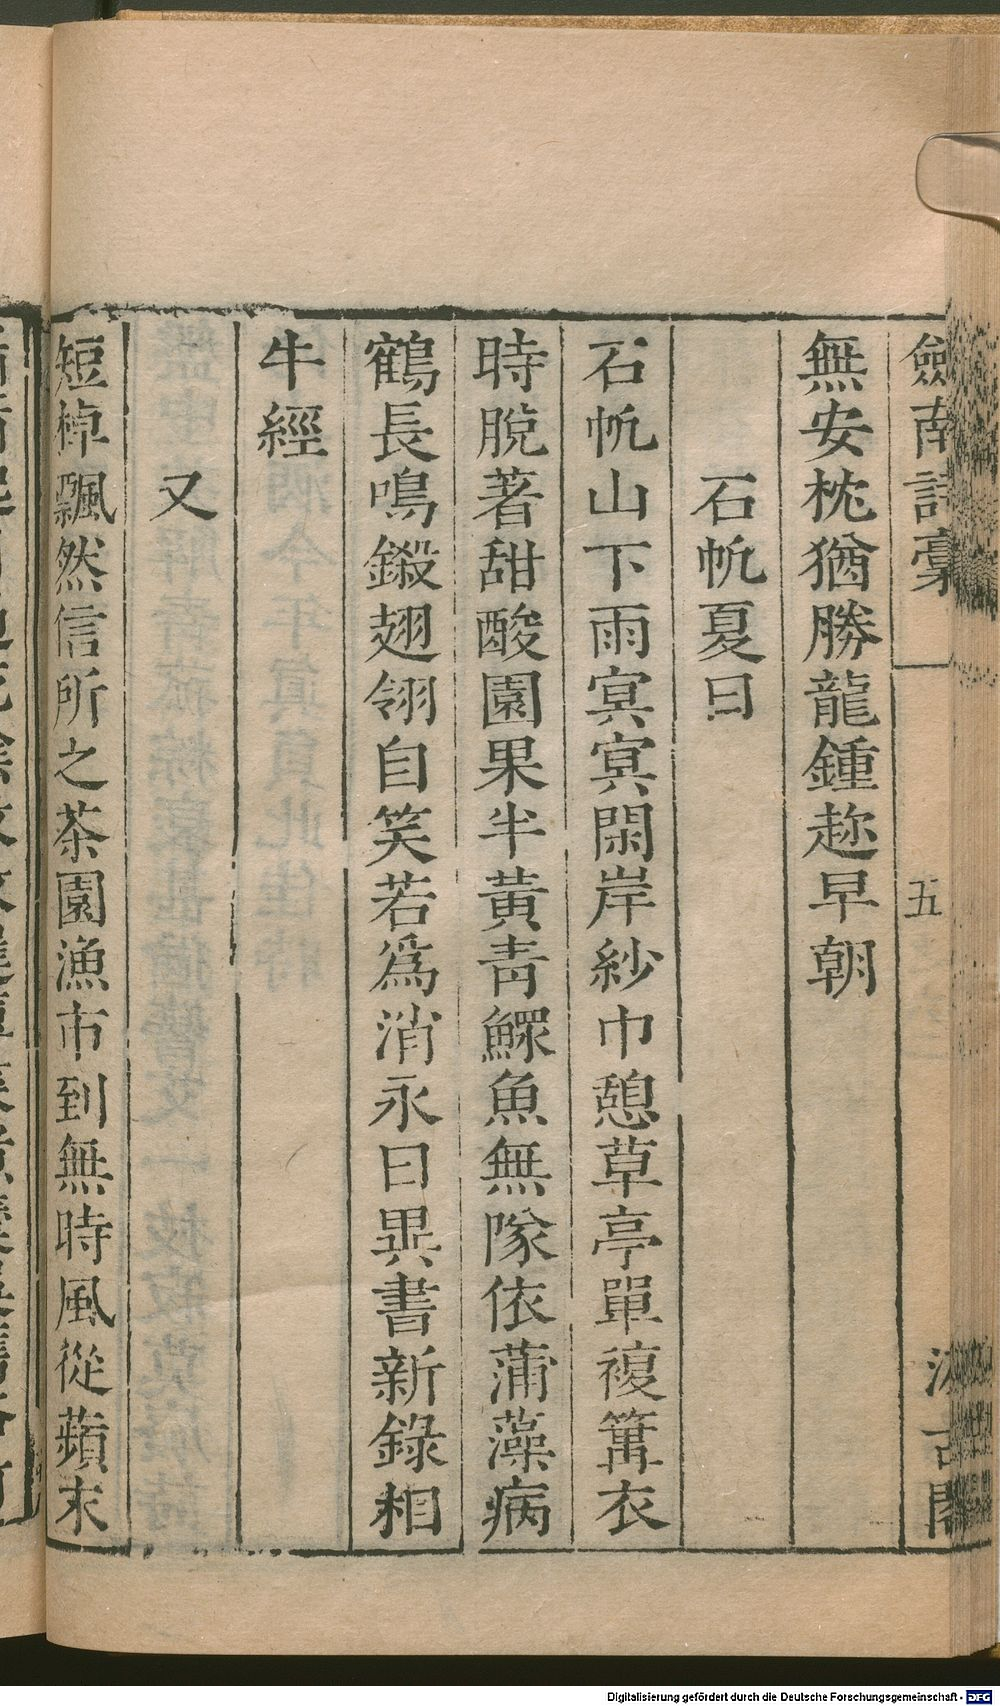 劍南詩稾 五 汲古閣
無安枕猶勝龍鍾趂早朝
石帆夏日
石帆山下雨冥冥閑岸紗巾憩草亭單複篝衣
時脫著甜酸園果半黃青鰥魚無隊依蒲藻病
鶴長鳴鎩翅翎自笑若爲消永日異書新錄相
牛經
又
短棹飄然信所之茶園漁市到無時風從蘋末
Digitalisierung gefördert durch die Deutsche Forschungsgemeinschaft - DFG